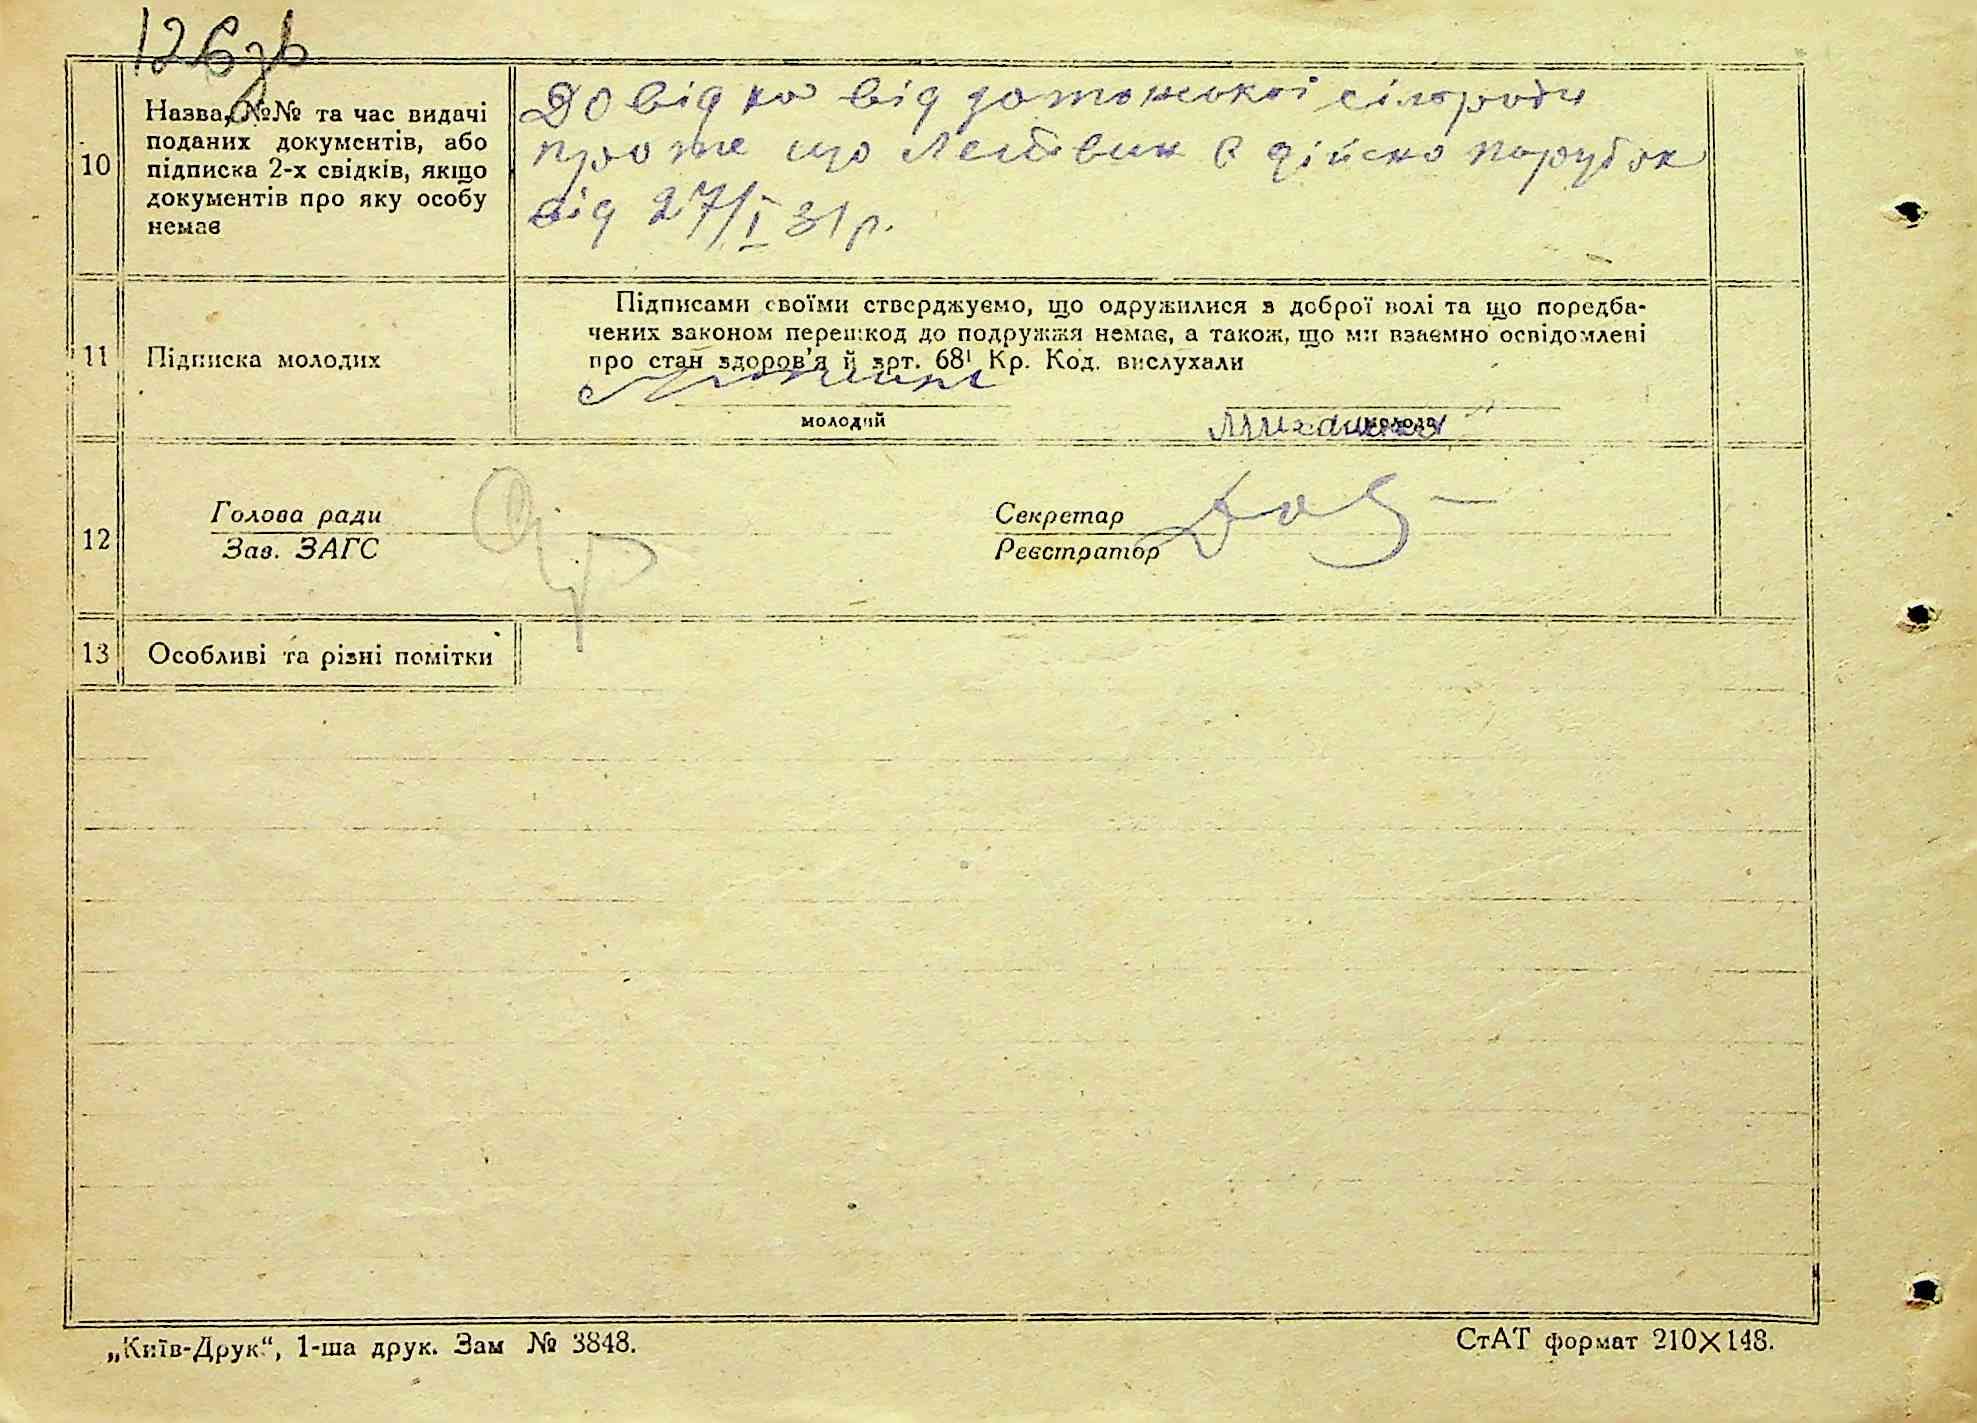 126зв
10
Назва, №№ та час видачі
поданих документів, або
підписка 2-х свідків, якщо
документів про яку особу
немає
Довідка від сільради
про те що є дійсно парубок
від 27/I 31 р.
11
Підписка молодих
Підписами своїми стверджуємо, що одружилися з доброї волі та що передба-
чених законом перешкод до подружжя немає, а також, що ми взаємно освідомлені
про стан здоров'я й арт. 68¹ Кр. Код. вислухали
молодий
молода
12
Голова ради
Зав. ЗАГС
Секретар
Реєстратор
13
Особливі та різні помітки
„Київ-Друк“, 1-ша друк. Зам № 3848.
СтАТ формат 210×148.